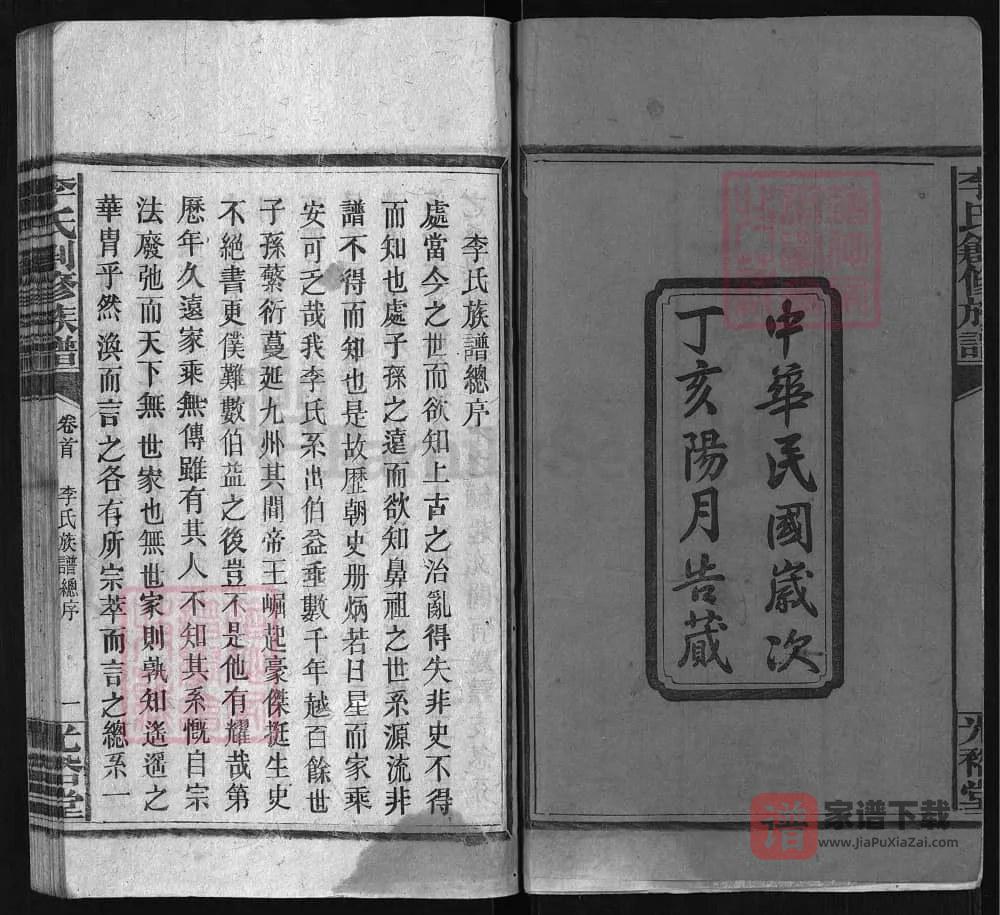 李氏創修族譜
中華民國歲次
丁亥陽月告蕆
李氏族譜總序
處當今之世而欲知上古之治亂得失非史不得
而知也處子孫之遠而欲知鼻祖之世系源流非
譜不得而知也是故歷朝史册炳若日星而家乘
安可乏哉我李氏系出伯益乖數千年越百餘世
子孫繁衍蔓延九州其間帝王崛起豪傑挺生史
不絕書更僕難數伯益之後豈不是他有耀哉第
歷年久遠家乘無傳雖有其人不知其系慨自宗
法廢弛而天下無世家也無世家則孰知遙遙之
華胄乎然渙而言之各有所宗萃而言之總系一
李氏創修族譜
卷首
李氏族譜總序
一
譜
家谱下载
www.JiaPuXiaZai.com